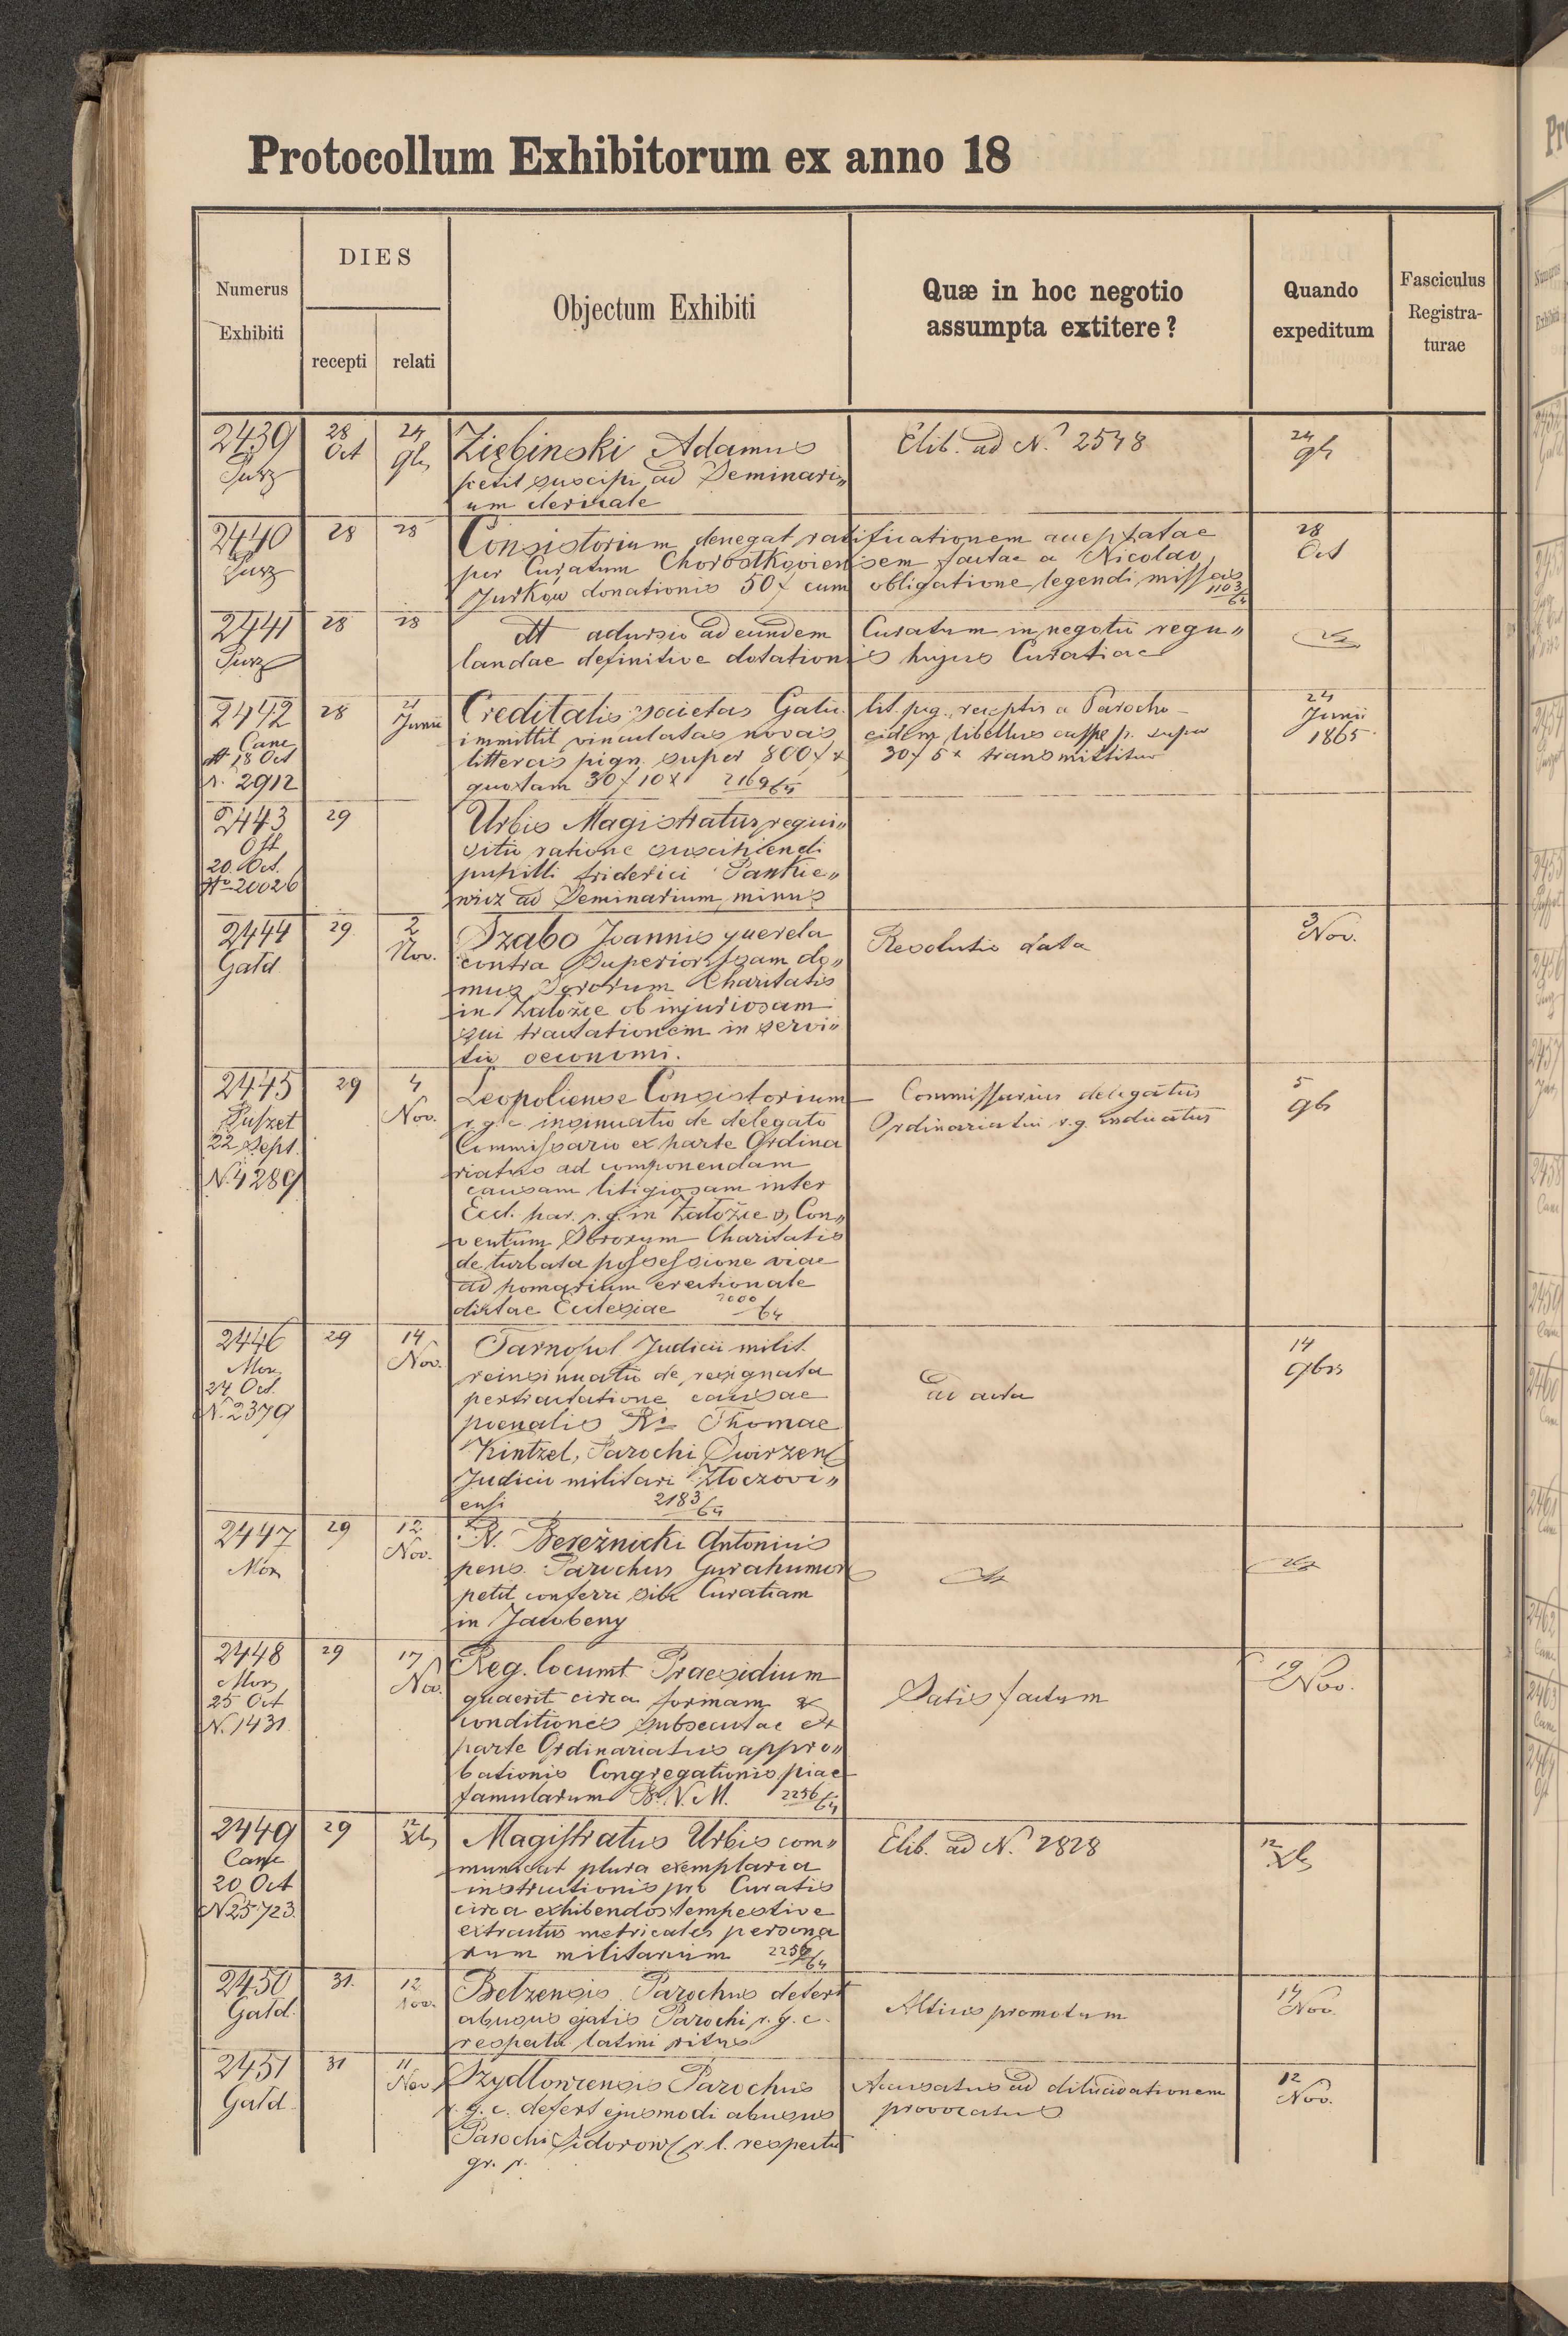 Protocollum Exhibitorum ex anno 18
Numerus
Exhibiti
DIES
recepti
relati
Objectum Exhibiti
Quæ in hoc negotio
assumpta extitere?
Quando
expeditum
Fasciculus
Registra-
turae
2439
28
Oct
24
9b
Ziębinski Adamus
petit suscipi ad Seminari„
um clericale
Elib. ad N. 2548
24
9b
2440
28
28
Consistorium denegat ratificationem acceptatae
per Curatum Chorostkoviensem factae a Nicolao
Jurkow donationis 50 f cum obligatione legendi missas
1103/64
28
Oct
2441
28
28
dt adversio ad eundem Curatum in negotio regu„
landae definitive dotationis hujus Curatiae
2442
Canc
dt 18 Oct
N. 2912
28
21
Junii
Creditalis societas Galic.
immittit vinculatas novas
litteras pign. super 800 f x
quotam 30 f 10 x 2169/64
lit. pig. receptis a Parocho
eidem libellus cassae p. super
30 f 5 x transmittitur
24
Junii
1865
2443
Off
20. Oct.
No 20026
29
Urbis Magistratus requi„
sitio ratione suscipiendi
pupilli friderici Pankie„
wicz ad Seminarium minus
2444
Gatd
29
2
Nov.
Szabo Joannis querela
contra Superiorissam do„
mus Sororum Charitatis
in Załoźce ob injuriosam
sui tractationem in servi„
tio oeconomi.
Resolutio data
3
Nov.
2445
Puszet
22 Sept.
N. 4289
29
4
Nov.
Leopoliense Consistorium
r. g. c. insinuatio de delegato
Commissario ex parte Ordina
riatus ad componendam
causam litigiosam inter
Eccl. par. r. g. in Załoźce & Con„
ventum Sororum Charitatis
de turbata possessione viae
ad pomarium erectionale
dictae Ecclesiae 2000/64
Commissarius delegatus
Ordinariatui r. g. indicatus
5
9b
2446
Mon
24 Oct.
N. 2379
29
14
Nov.
Tarnopol Judicii milit.
reinsinuatio de resignata
pertractatione causae
poenalis Ri Thomae
Kintzel, Parochi Swirzens
Judicio militari Złoczovi„
ensi 2183/64
ad acta
14
9bris
2447
Mon
29
12.
Nov.
R. Bereźnicki Antonius
pens. Parochus Gurahumor
petit conferri sibi Curatiam
in Jacobeny
2448
Mon
25 Oct
N. 1431
29
17
Nov.
Reg. locumt. Praesidium
quaerit circa formam &
conditiones subsecutae ex
parte Ordinariatus appro„
bationis Congregationis piae
famularum B. V. M. 2256/64
Satisfactum
19
Nov.
2449
Canc
20 Oct
N 25723
29
12
Xb
Magistratus Urbis com„
municat plura exemplaria
instructionis pro Curatis
circa exhibendos tempestive
extractus metricales persona
rum militarium
Elib. ad N. 2828
12
Xb
2450
Gatd.
31.
12
Nov.
Betzensis Parochus defert
abusus gatis Parochi r. g. c.
respectu latini ritus
Altius promotum
14
Nov.
2451
Gatd.
31
11
Nov
Szydlowcensis Parochus
r. g. c. defert ejusmodi abusus
Parochi Sidorow r. l. respectu
gr. r.
Accusatus ad dilucidationem
provocatus
12
Nov.